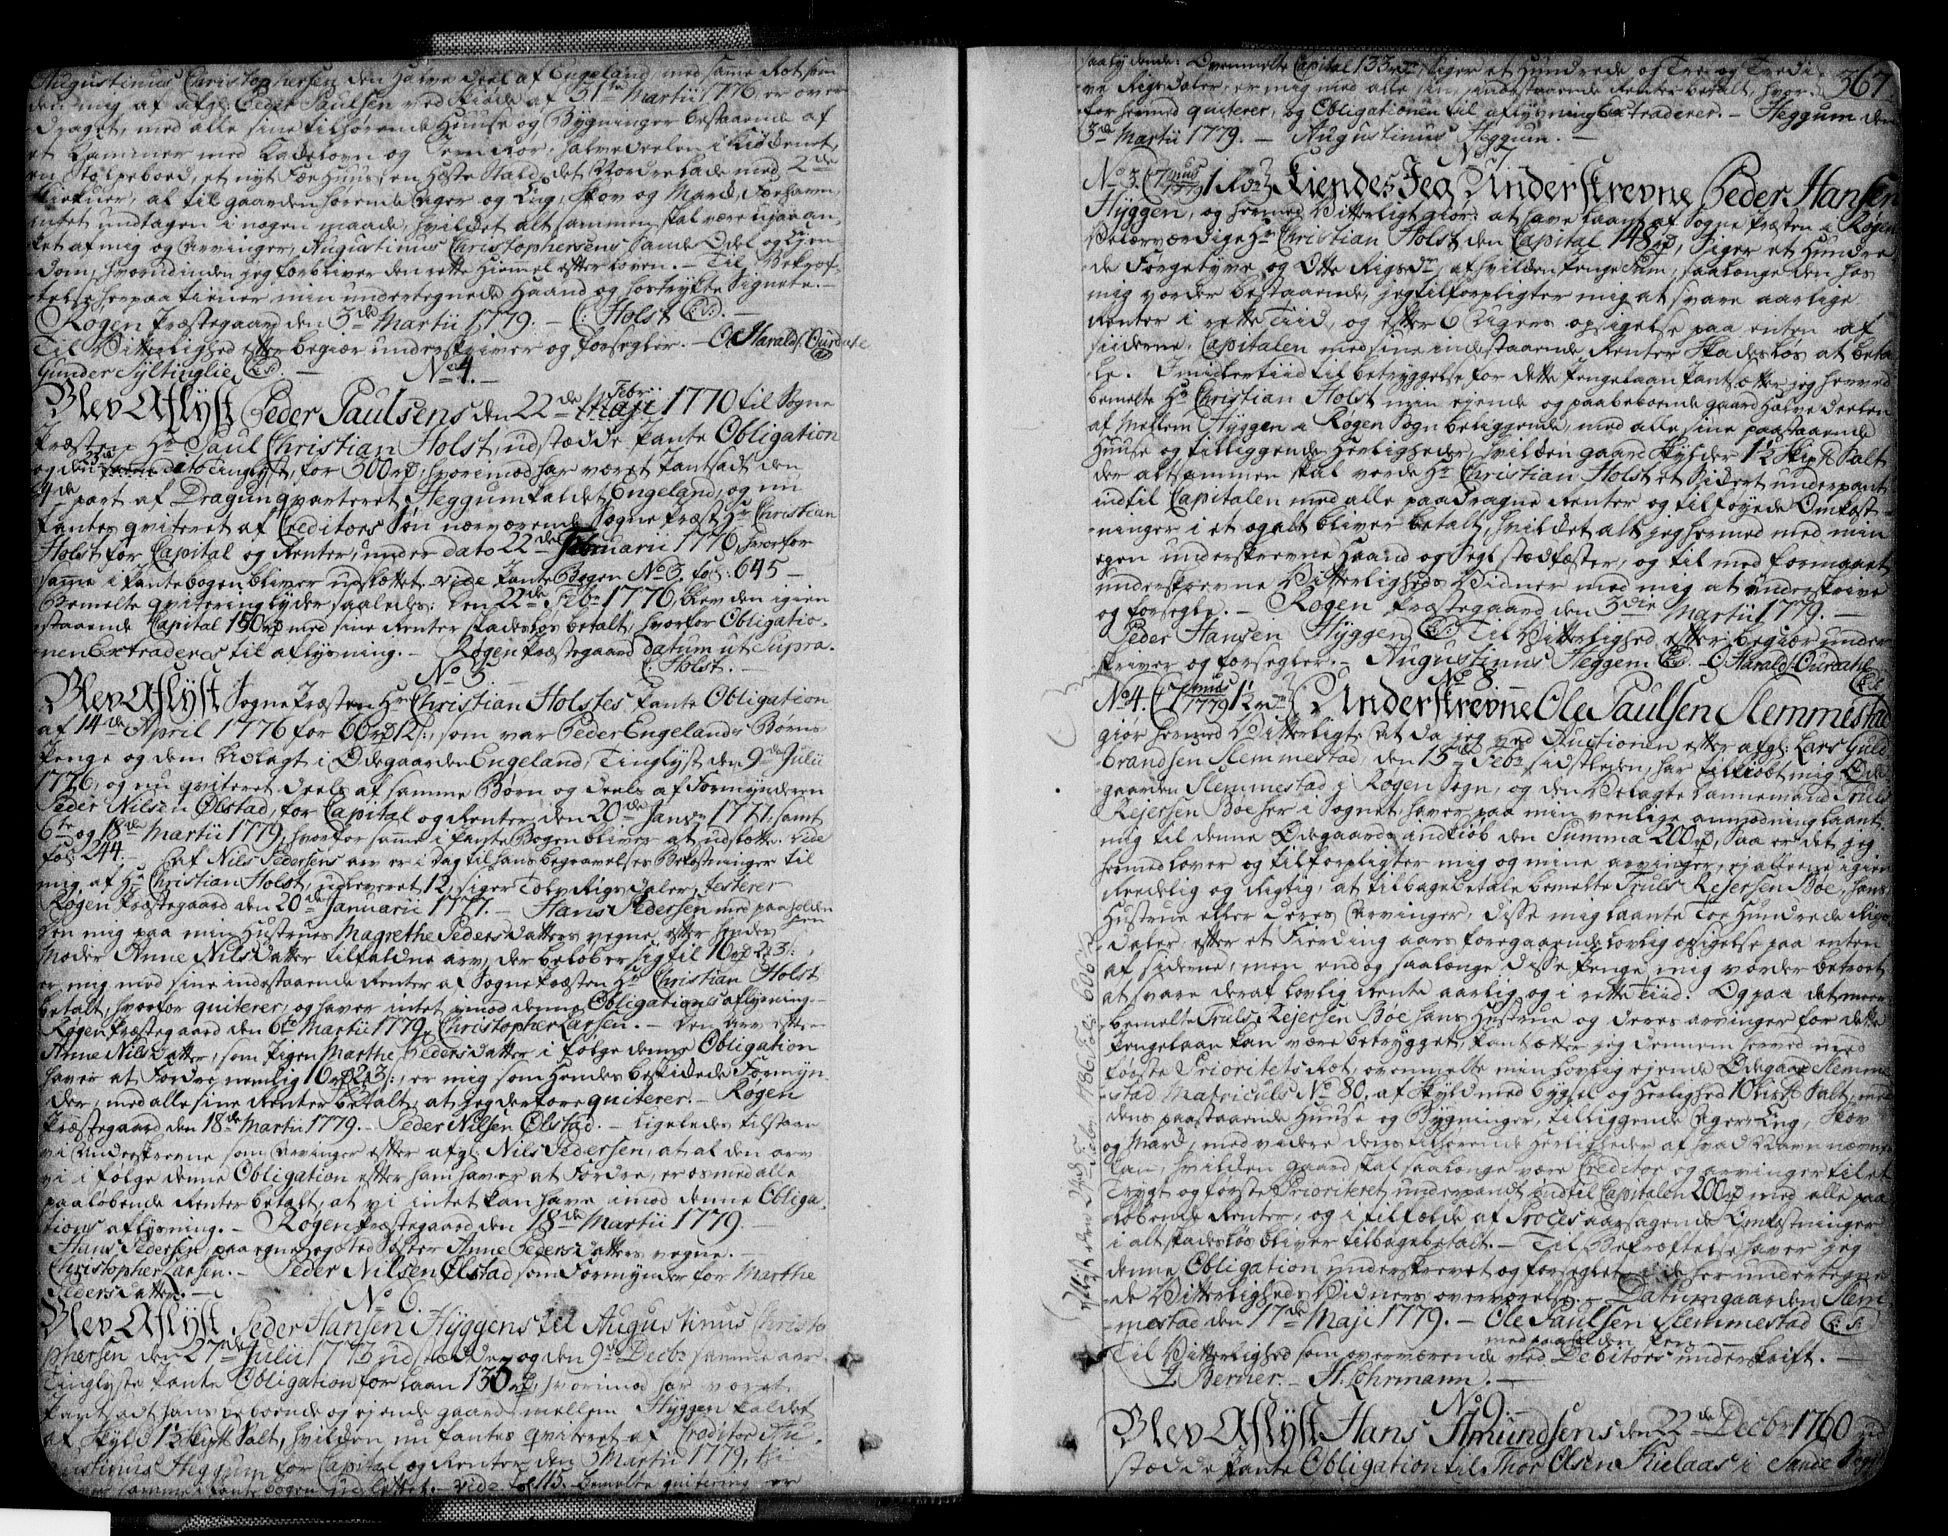 Augustinus Christophersen den halve deel af Engeland, med same Ret som
den mig af afgl: Peder Paulsen ved skiøde af 31te Martii 1776 er over
draget, med alle sine tilhørende Huuse og Bygninger bestaaende af
et Kammer med Kakelovn og Jern Rør, halve deelen i Kiødenet,
en Stolpeboed, et nyt Fæe Huus, en Heste Stald, det Nordre Lade med 2de
af til gaarden hørende Ager og Eng, Skov og Mark, Fæehavn,
intet undtagen i nogen maade, hvilket alt sammen skal være upaaan-
ket af mig og Arvinger, Augustinus Christophersens sande Odel og Eyen-
dom, hvorudinden jeg forbliver den rette Hiemel efter loven. - Til Bekræf-
telse herpaa tiener min undertegnede Haand og hostrykte Signete. -
Røgen Præstegaard den 3de Martii 1779. - C: Holst (L:S:) -
Til Vitterlighed efter begiær underskriver og forsegler. - O: Harald: Ourdahl
Gunder Syltinglie (L:S:) -
No 4. -
Blev Aflyst Peder Paulsens den 22de Febrii 1770 til Sogne
Præsten Hr Paul Christian Holst, udstædde Pante Obligation
og den 23de dito Tinglyst, for 300 rd, hvorimod har været Pantsadt den
4de part af Dragunqvarteret Heggum kaldet Engeland, og nu
Pantes qviteret af Creditors Søn nærværende Sogne Præst Hr Christian
Holst for Capital og Renter, under dato 22de Februarii 1776, hvorfor
same i Pantebogen bliver udslettet. vide Pante Bogen No 3. fol: 645 -
Bemelte qvitering lyder saaledes: Den 22de Febr 1776, blev den igien
staaende Capital 150 rd med sine Renter skadesløs betalt; hvorfor Obligatio-
nen Extraderes til aflysning. - Røgen Præstegaard datum ut Supra.
C: Holst. -
No 5.
Blev Aflyst Sogne Præsten Hr Christian Holstes Pante Obligation
af 14de April 1776 for 60 rd 12 s:, som var Peder Engelands Børns
Penge og dem udlagt i Ødegaarden Engeland, Tinglyst den 9de Julii
1776, og nu qviteret deels af samme Børn og deels af Formynderen
Peder Nilsen Ølstad, for Capital og Renter, den 20de Janr 1777. samt
6te og 18de Martii 1779, hvorfor samme i Pante Bogen bliver at udslette. vide
fol: 244. - Af Nils Pedersens arv er i dag til hans begravelses Bekostninger til
mig, af Hr Christian Holst, udleveret 12, siger Tolv Rigsdaler, testerer
Røgen Præstegaard den 20de Januarii 1777. - Hans Pedersen med paaholden
Pen
Den mig paa min Hustrues Magrethe Pedersdatters vegne, efter hendes
Moder Anne Nilsdatter tilfaldne arv, der beløber sig til 16 rd 23 s:
er mig med sine indestaaende Renter af Sogne Præsten Hr Christian Holst
betalt, hvorfor qviterer, og haver intet imod denne Obligations aflysning -
Røgen Præstegaard den 6te Martii 1779. Christopher Larsen. - Den Arv efter
Anne Nilsdatter, som Pigen Marthe Pedersdatter i følge denne Obligation
haver at Fordre nemlig 16 rd 23 s:, er mig som hendes beskikede Formyn
der, med alle sine Renter betalt, at jeg derfore qviterer. - Røgen
Præstegaard den 18de Martii 1779. - Peder Nilsen Ølstad. - Ligeledes tilstaar
vi Underskrevne som Arvinger efter afgl. Nils Pedersen, at al den arv
vi i følge denne Obligation efter ham haver at Fordre, er os med alle
paaløbende Renter betalt, at vi intet kan have imod denne Obliga-
tions aflysning. - Røgen Præstegaard den 18de Martii 1779. -
Hans Pedersen, paa egne og Sted Søster Anne Pedersdatters vegne. -
Christopher Larsen. - Peder Nilsen Ølstad, som Formynder for Marthe
Pedersdatter. -
No 6.
Blev Aflyst Peder Hansen Hyggens til Augustinus Christo
phersen den 27de Julii 1773 udstædde og den 9de Decbr samme aar
Tinglyste Pante Obligation for laan 133 rd, hvorimod har været
Pantsadt hans beboende og ejende gaard mellem Hyggen kaldet
af Skyld 1½ Skip℔ Salt, hvilken nu Pantes qviteret af Creditor Au-
gustinus Heggum for Capital og Renter, den 3 Martii 1779, thi
samme i Pante bogen udslettet. - vide fol 115. - bemelte qvitering er

saalydende: Ovenmelte Capital 133 rd, siger et Hundrede og Tre og Tredi-
ve Rigsdaler, er mig med alle sine indestaaende Renter betalt, hvor-
for hermed quiterer, og Obligationen til aflysning Extraderer. - Heggum den
3de Martii 1779. - Augustinus Heggum. -
367
No 7
No 3. 1779 Kiendes Jeg Underskrevne Peder Hansen
Hyggen, og hermed Vitterligt giør: at have laant af Sogne Præsten i Røgen
Velærværdige Hr Christian Holst den Capital 148 rd, Siger et Hundre
de Førgetyve og Otte Rigsdr, af hvilken Penge Sum, saalænge den hos
mig vorder bestaaende, jeg tilforpligter mig at svare aarlige
Renter i rette Tiid, og efter 6 Ugers opsigelse paa enten af
siiderne, Capitalen med sine indestaaende Renter Skadesløs at beta
le. Imidlertiid til betryggelse for dette Pengelaan Pantsætter jeg herved
bemelte Hr Christian Holst min ejende og paaboende gaard halve deelen
af Mellem Hyggen i Røgen Sogn beliggende, med alle sine paastaaende
Huuse og tilliggende Herligheder, hvilken gaard Skylder 1½ Skip℔ Salt
der altsammen skal vorde Hr Christian Holst et Sickert underpant
indtil Capitalen med alle paadragne Renter og tilføyede Omkost-
ninger i et og alt bliver betalt, hvilket alt jeg hermed med min
egen underskrevne Haand og Segl stadfæster, og til med formaaet
underskrevne Vitterligheds Vidner med mig at underskrive
og forsegle. - Røgen Præstegaard den 3die Martii 1779. -
Peder Hansen Hyggen (L:S:) Til Vitterlighed efter begiær under
skriver og forsegler. - Augustinus Heggem (L:S:) - O: Harald: Ourdahl
(L:S:)
No 8.
No 4. 1779 Underskrevne Ole Paulsen Slemmestad
giør hermed Vitterligt: At da jeg ved Auctionen efter afgl: Lars Guld
brandsen Slemmestad, den 15de Febr sidstleden, har tilkiøbt mig Øde
gaarden Slemmestad i Røgen Sogn, og den Velagte Dannemand Truls
Rejersen Boe her i Sognet, haver paa min venlige anmodning laant
mig til denne Ødegaards indkiøb den Summa 200 rd, Saa er det jeg
hermed lover og tilforpligter mig og mine arvinger, ej alleene igien
Reedelig og Rigtig, at tilbagebetale bemelte Truls Rejersen Boe, hans
Hustrue eller Deres Arvinger, disse mig laante Toe Hundrede Rigs
daler, efter et Fierding aars foregaaende lovlig opsigelse paa enten
af siderne, men end og saalænge disse Penge mig vorder betroet
at svare deraf lovlig Rente aarlig og i rette Tiid. Og paa det meer
bemelte Truls Rejersen Boe hans Hustrue og deres arvinger for dette
Pengelaan kan være betrygget, Pantsætter jeg Dennem herved med
første Prioritets Ræt, ovenmelte min lovlig ejende Ødegaard Slemme
stad Matriculs No 80, af Skyld med bygsel og Herlighed 10 Lis℔ Salt, med
dens paastaaende Huuse og Bygninger, tilliggende Ager, Eng, Skov
og Mark, med videre dens tilhørende Herligheder af hvad Navn nævnes
kan, hvilken gaard skal saalænge være Creditor og arvinger til et
Trygt og første Prioriteret underpandt indtil Capitalen 200 rd med alle paa
løbende Renter, og i tilfælde af Proces aarsagende Omkostninger
i alt skadesløs bliver tilbagebetalt. - Til Bekræftelse haver jeg
denne Obligation underskrevet og forseglet i de her undertegne
de Vitterligheds Vidners overværelse. - Datum gaarden Slem
mestad den 17de Maji 1779. - Ole Paulsen Slemmestad (L:S:)
med paaholden Pen
Til Vitterlighed som overværende ved Debitors underskrift. -
J. Berner. - H. Lohrmann. -
No 9.
Blev Aflyst Hans Amundsens den 22de Decbr 1760 ud
stædde Pante Obligation til Thor Olsen Kielaas i Sande Sogn